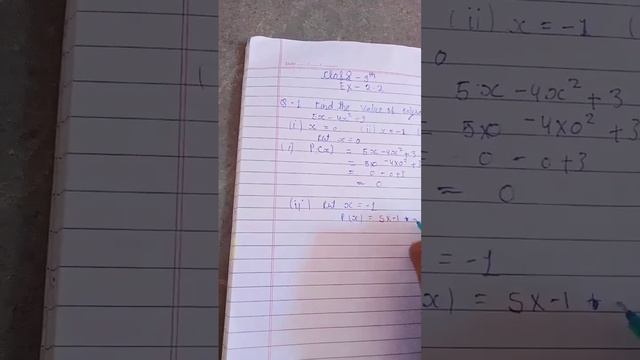 Class - 9th
Ex - 2.2
Q-1 Find the value of
5x - 4x² + 3
(i) x = 0 (ii) x = -1 (
Put x = 0
(i) P(x) = 5x - 4x² + 3
= 5x0 - 4x0² + 3
= 0 - 0 + 3
= 0
(ii) Put x = -1
P(x) = 5x-1
(ii) x = -1 (
0
5x - 4x² + 3
5x0 - 4x0² +
0 - 0 + 3
= 0
= -1
x) = 5x-1